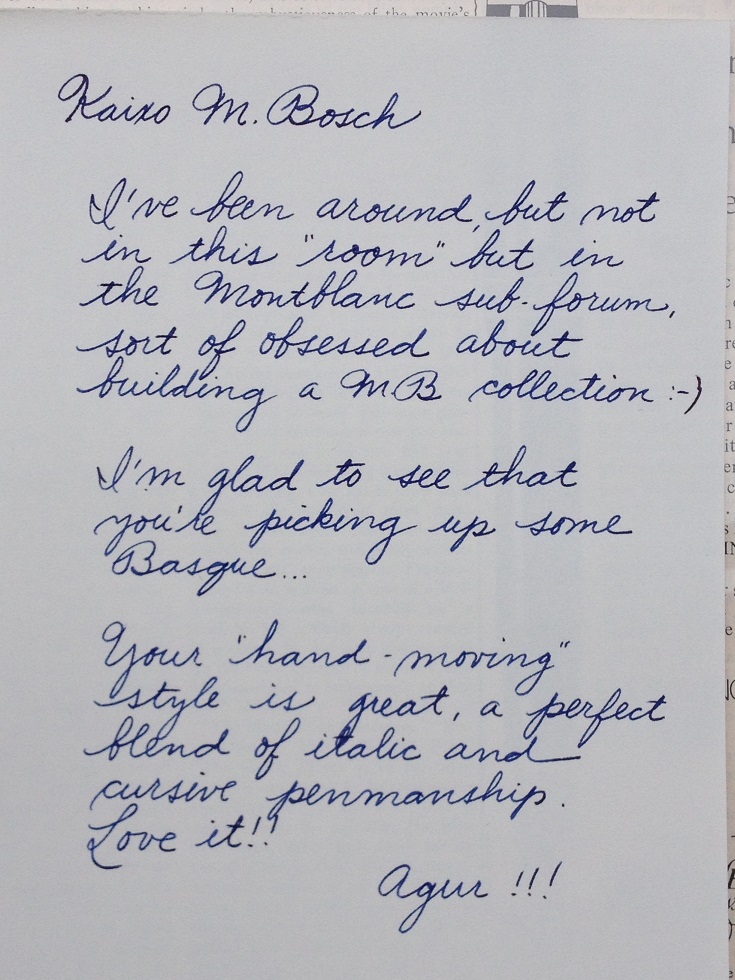 Kaixo M. Bosch
I've been around, but not
in this "room" but in
the Montblanc sub-forum,
sort of obsessed about
building a MB collection :-)
I'm glad to see that
you're picking up some
Basque...
Your "hand-moving"
style is great, a perfect
blend of italic and
cursive penmanship.
Love it!!
Agur !!!